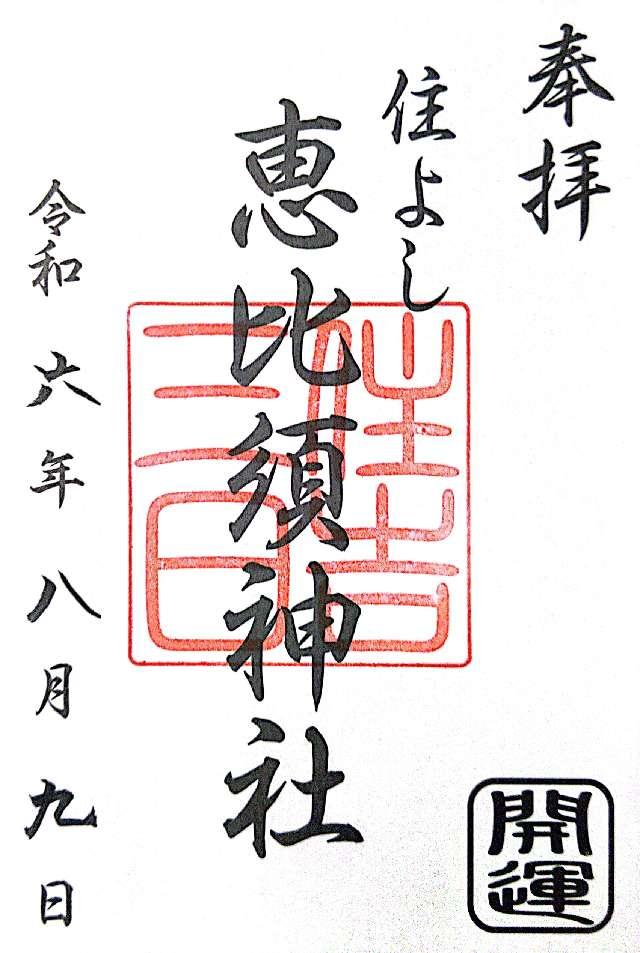 奉拝
住よし
恵比須神社
住吉
三日
令和 六年 八月 九日
開運